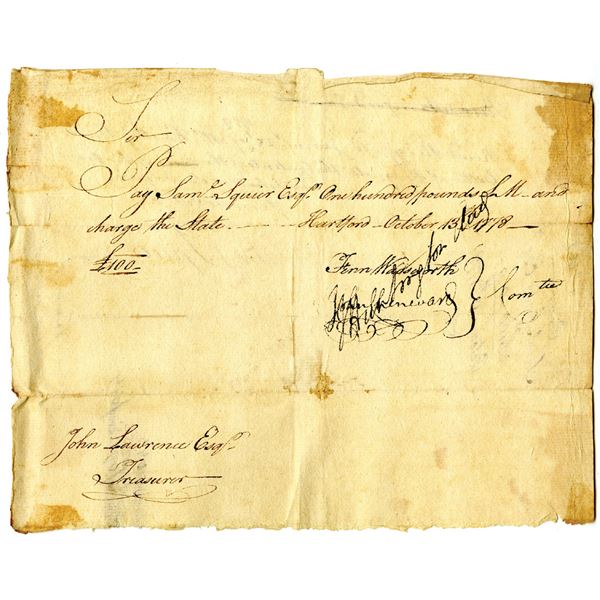 Sir
Pay Sam.l Squier Esq.r One hundred pounds L M - and
charge the State. - Hartford - October 13th 1778 -
£100 -
Fenn Wadsworth
John Chenevard
Com tee
John Lawrence Esq.r
Treasurer